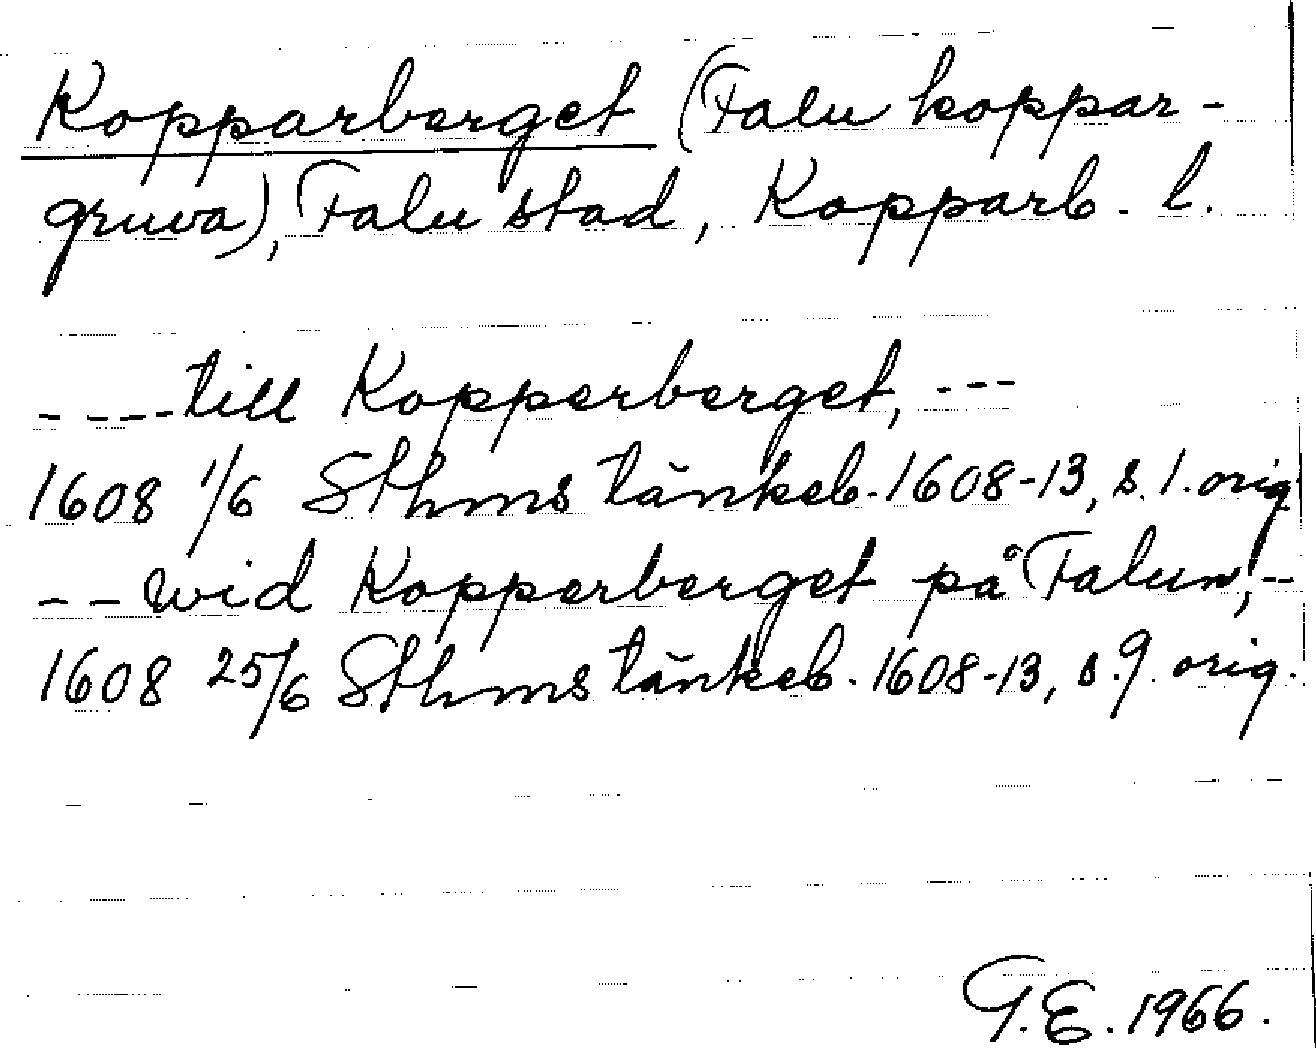 Kopparberget (Falu koppar-
gruva), Falu stad, Kopparb. l.
----till Kopperberget, ---
1608 1/6 Sthms tänkeb. 1608-13, s. 1. orig
-- wid Kopperberget på Falun, --
1608 25/6 Sthms tänkeb. 1608-13, s. 9. orig.
G.E. 1966.